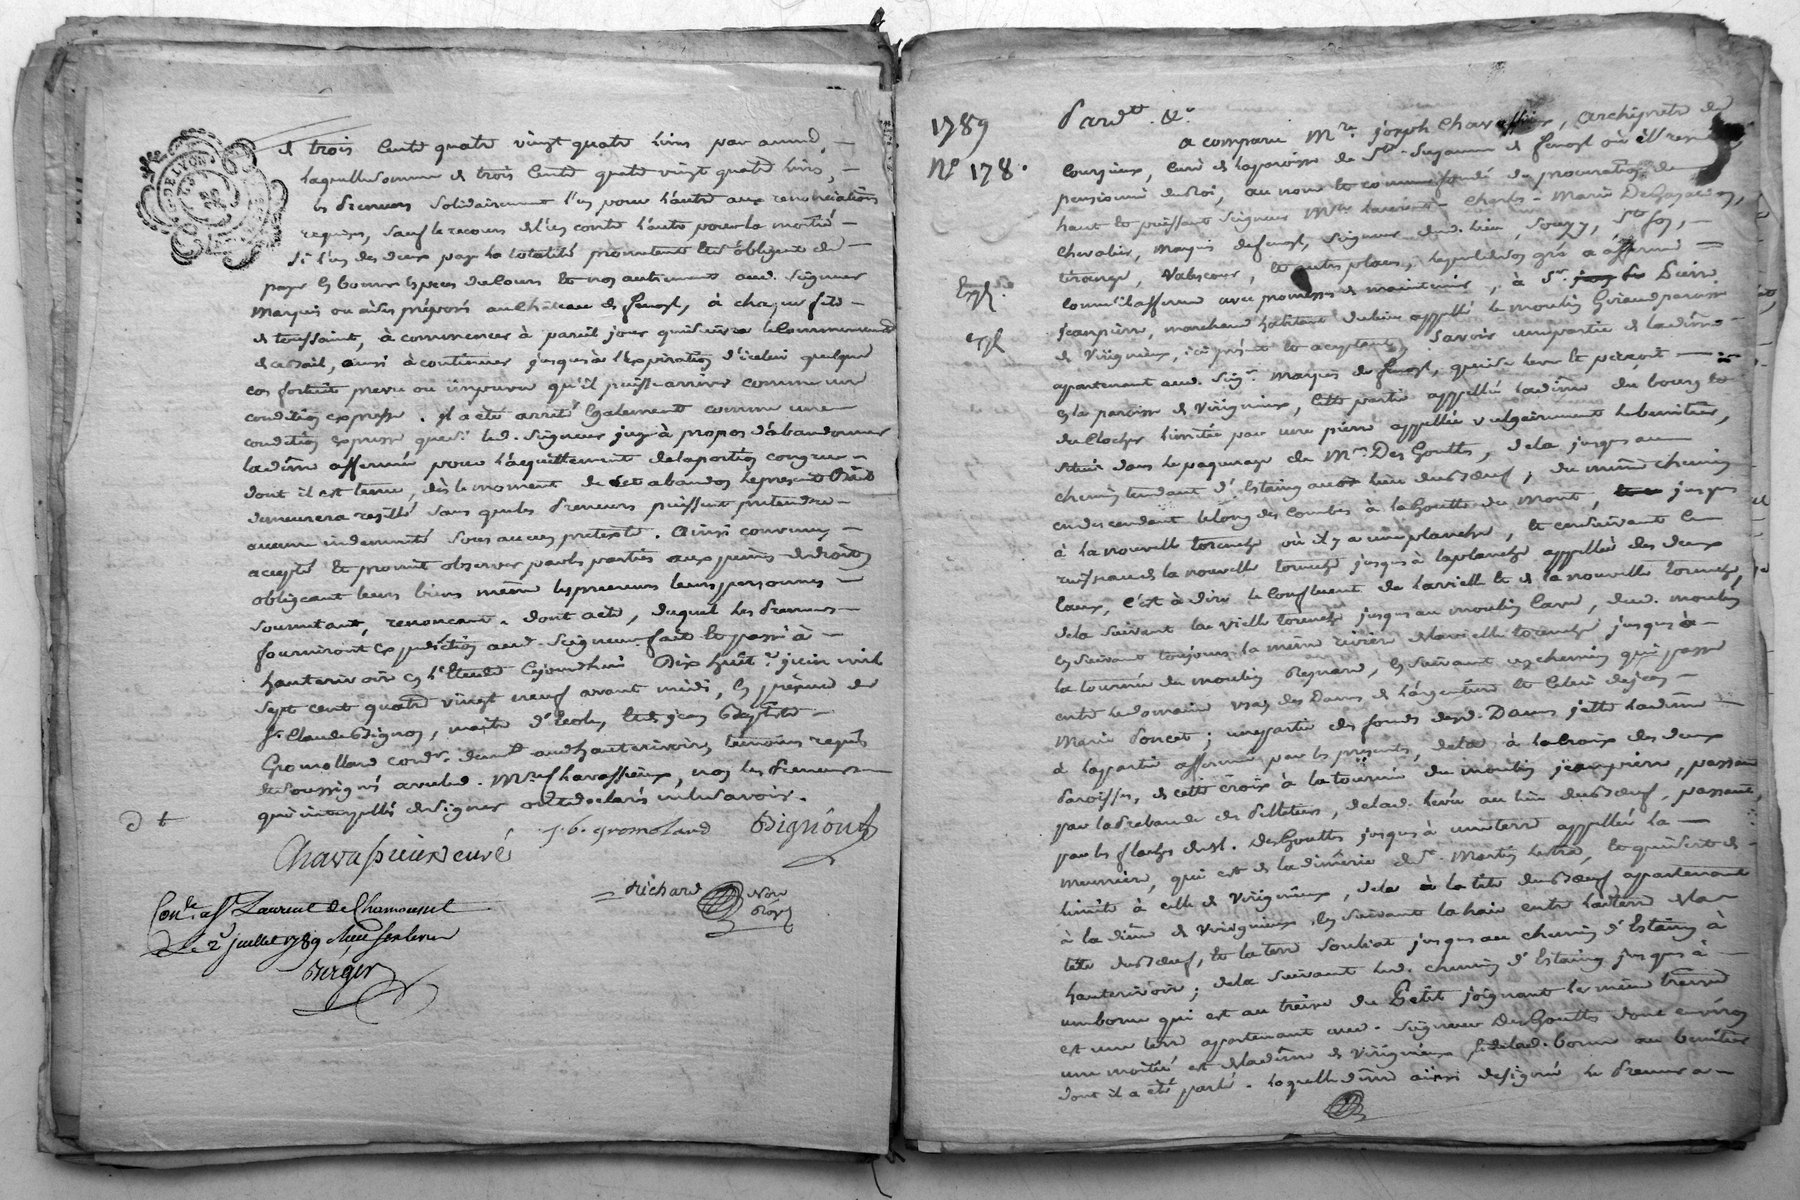 de trois cents quatre vingt quatre livres par année,
laquelle somme de trois cents quatre vingt quatre livres,
les preneurs solidairement l'un pour l'autre aux renonciations
requises, sauf le recours de l'un contre l'autre pour la moitié
si l'un des deux paye la totalité promettent et s'obligent de
payer en bonnes espèces de cours et non autrement aud. seigneur
marquis ou à ses préposés au château de fenoyl, à chaque fête
de toussaint, à commencer à pareil jour qui suivra le commencement
de ce bail, ainsi à continuer jusques à l'expiration d'icelui quelque
cas fortuit prevu ou imprevu qu'il puisse arriver comme une
condition expresse. il a été arreté également comme une
condition expresse que si led. seigneur juge à propos d'abandonner
la dîme affermée pour l'acquittement de la portion congrue
dont il est tenu, dès le moment de cet abandon le present Bail
demeurera resillé sans que les preneurs puissent pretendre
aucune indemnité sous aucun pretexte. Ainsi convenu,
accepté et promit observer par les parties aux peines de droit
obligeant leurs biens même les preneurs leurs personnes
soumettant, renonceant. dont acte, duquel les preneurs
fourniront expedition aud. seigneur fait et passé à
hauterivoire en l'Etude cejourdhui Dix huit juin mil
sept cent quatre vingt neuf avant midi, en présence de
sr. Claude Bignon, maitre d'ecole, et de jean Baptiste
Gromolland cordr. demt. aud. hauterivoire, temoins requis
et soussignés avec led. Mre. Chavassieux, non les preneurs
qui interpellés de signer ont declaré ne le savoir.
Chavassieux curé
j. b. gromoland
Bignon
Richard
Nore
Roy
Conlé. a St. Laurent de Chamousset
Le 2 juillet 1789
Berger
1789
No 178.
Pardt. &c.
a comparu Mre. joseph Chavassieux, archiprêtre de
Courzieux, curé de la paroisse de Ste. Suzanne de fenoyl où il reside
pensionné du Roi, au nom et comme fondé de procuration de
haut et puissant seigneur Mre. laurent-Charles-Marie De Gayardon,
Chevalier, Marquis de fenoyl, seigneur dud. lieu, Souzy, Ste foy,
tirange, Valescour, et autres places, lequel de son gré a affermé
comme il afferme avec promesses de maintenir, à Sr. Pierre
jeanpierre, marchand habitant du lieu appellé le moulin Giraud paroisse
de Virigneux, ici présent et acceptant, savoir une partie de la dîme
appartenant aud. Sigr. Marquis de fenoyl, qui se leve et perçoit
en la paroisse de Virigneux, cette partie appellée la dîme du bourg et
du clocher limitée par une pierre appellée vulgairement le benitier,
située dans le paquerage de Mr. Des Gouttes, de là jusques au
chemin tendant d'Estaing au lieu du Boeuf; du même chemin
en descendant le long des combes à la Goutte du Mont, jusques
à la nouvelle toranche où il y a une planche, et en suivant le
ruisseau de la nouvelle toranche jusques à la planche appellée des deux
eaux, c'est à dire le confluent de la vieille et de la nouvelle toranche,
de là suivant la vieille toranche jusques au moulin Cave, dud. moulin
en suivant toujours la même rivière de la vieille toranche jusques à
la tournée du moulin Reynard, en suivant un chemin qui passe
entre le domaine des Dames de l'argentiere et celui de jean
Marie Poncet; une partie des fonds desd. Dames jette la dîme
à la partie affermée par les présentes, de là à la Croix des deux
Paroisses, de cette croix à la tournée du moulin jeanpierre, passant
par la Prebande des Pelletiers, de lad. levée au lieu du Boeuf, passant
par les flaches dud. Sr. des Gouttes jusques à une terre appellée la
meuniere, qui est de la dîmerie de St. Martin lestra, et qui sert de
limite à celle de Virigneux, de là à la tête du Boeuf appartenant
à la dîme de Virigneux, en suivant la haie entre la terre de la
tête du Boeuf, et la terre Souliat jusques au chemin d'Estaing à
hauterivoire; de là suivant led. chemin d'Estaing jusques à
une borne qui est au treive du Petit joignant le même treive
est une terre appartenant aud. seigneur Des Gouttes dont environ
une moitié est de la dîme de Virigneux et de lad. borne au benitier
dont il a été parlé. laquelle dîme ainsi designée le preneur a